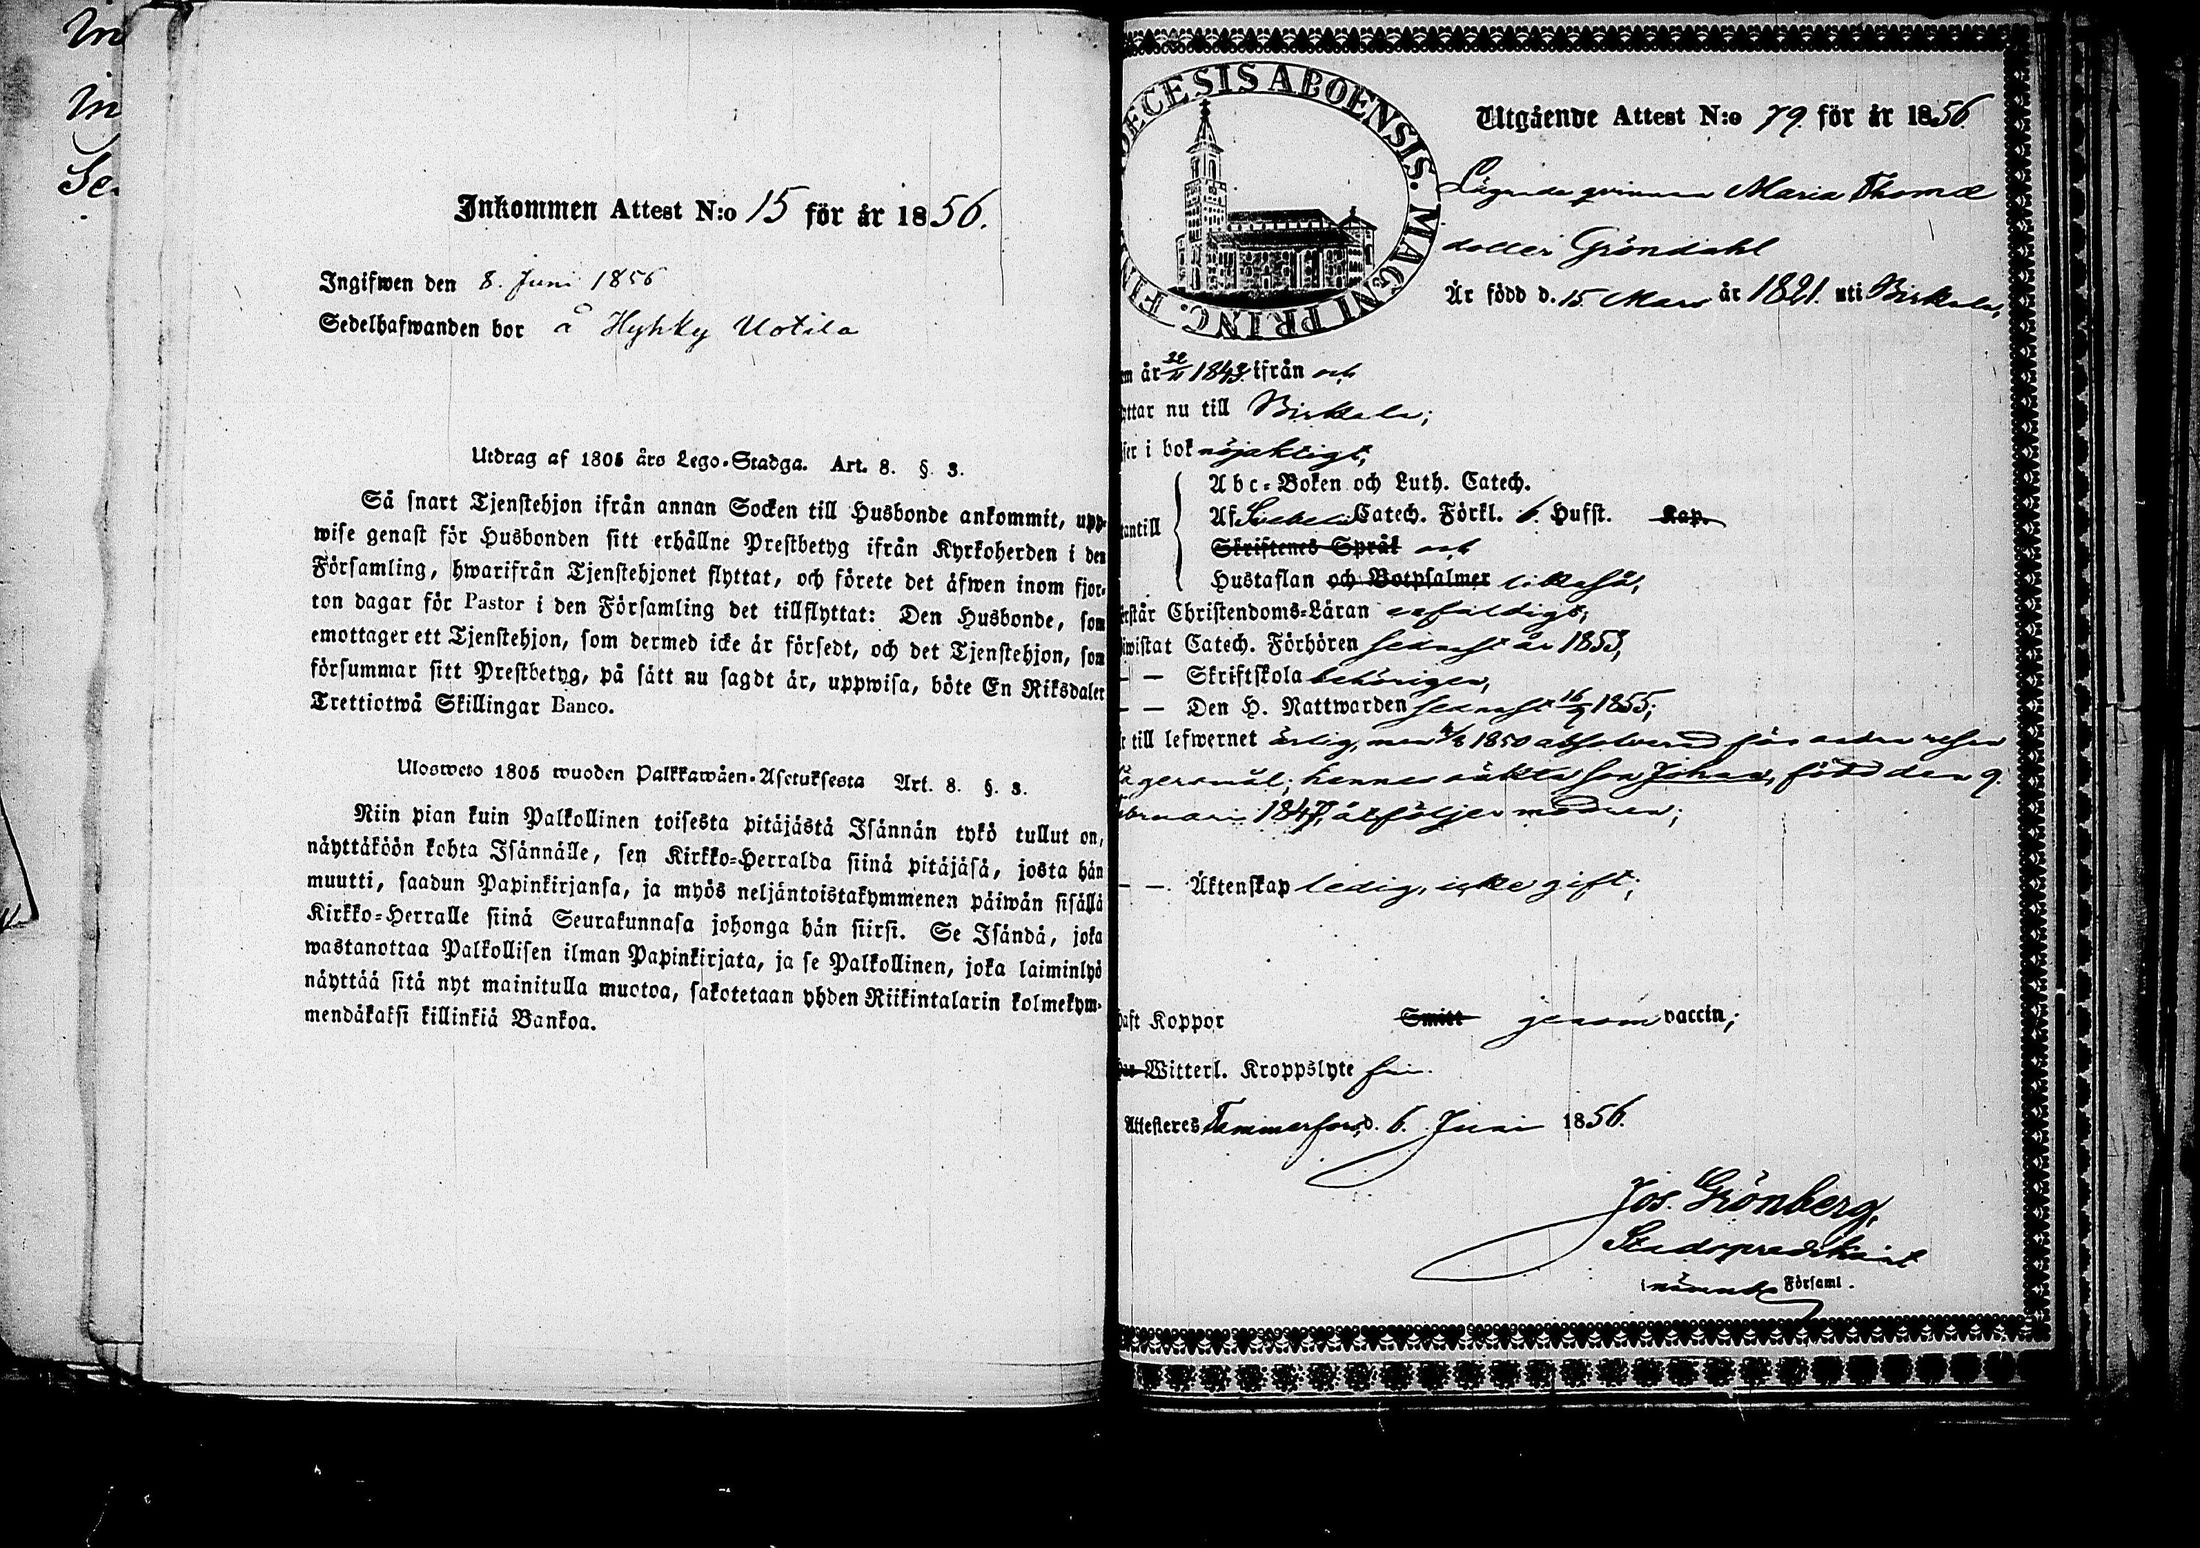 Inkommen Attest N:o 15 för år 1856.
Ingifwen den 8. Juni 1856
Sedelhafwanden bor å Hyhky Uotila
Utdrag af 1805 års Lego-Stadga. Art. 8. §. 3.
Så snart Tjenstehjon ifrån annan Socken till Husbonde ankommit, upp-
wise genast för Husbonden sitt erhållne Prestbetyg ifrån Kyrkoherden i den
Församling, hwarifrån Tjenstehjonet flyttat, och förete det äfwen inom fjor-
ton dagar för Pastor i den Församling det tillflyttat: Den Husbonde, som
emottager ett Tjenstehjon, som dermed icke är försedt, och det Tjenstehjon, som
försummar sitt Prestbetyg, på sätt nu sagdt är, uppwisa, böte En Riksdaler
Trettiotwå Skillingar Banco.
Ulosweto 1805 wuoden Palkkawäen-Asetuksesta Art. 8. §. 3.
Niin pian kuin Palkollinen toisesta pitäjästä Isännän tykö tullut on,
näyttäköön kohta Isännälle, sen Kirkko-Herralda siinä pitäjäsä, josta hän
muutti, saadun Papinkirjansa, ja myös neljäntoistakymmenen päiwän sisällä
Kirkko-Herralle siinä Seurakunnasa johonga hän siirsi. Se Isändä, joka
wastanottaa Palkollisen ilman Papinkirjata, ja se Palkollinen, joka laiminlyö
näyttää sitä nyt mainitulla muotoa, sakotetaan yhden Riikintalarin kolmekym-
mendäkaksi killinkiä Bankoa.
DECESIS ABOENSIS. MAGNI PRINC. FIN
Utgående Attest N:o 79. för år 1856.
Lägrade qvinnan Maria Thomæ
dotter Gröndahl
Är född d. 15 Mars år 1821. uti Birkala,
om år 1843. ifrån och
yttar nu till Birkala;
ser i bok nöjaktigt,
Abc-Boken och Luth. Catech.
antill Af Svebelii Catech. Förkl. 6. Hufst. Kap.
Skriftenes Språk och
Hustaflan och Botpsalmer likaså,
rstår Christendoms-Läran enfaldigt;
iwistat Catech. Förhören sednast år 1853,
— — Skriftskola behörigen,
— — Den H. Nattwarden sednast 16/9 1855;
r till lefwernet ärlig, men 1850 absolverad för andra resan
lägersmål; hennes oäkta son Johan, född den 9.
ebruari 1847, åtföljer modren;
— — Äktenskap ledig, icke gift;
haft Koppor Smitt genom vaccin;
Witterl. Kroppslyte fri.
Attesteres Tammerfors, d. 6. Juni 1856.
Jos. Grönberg,
Stadspredikant
i nämnde Församl.